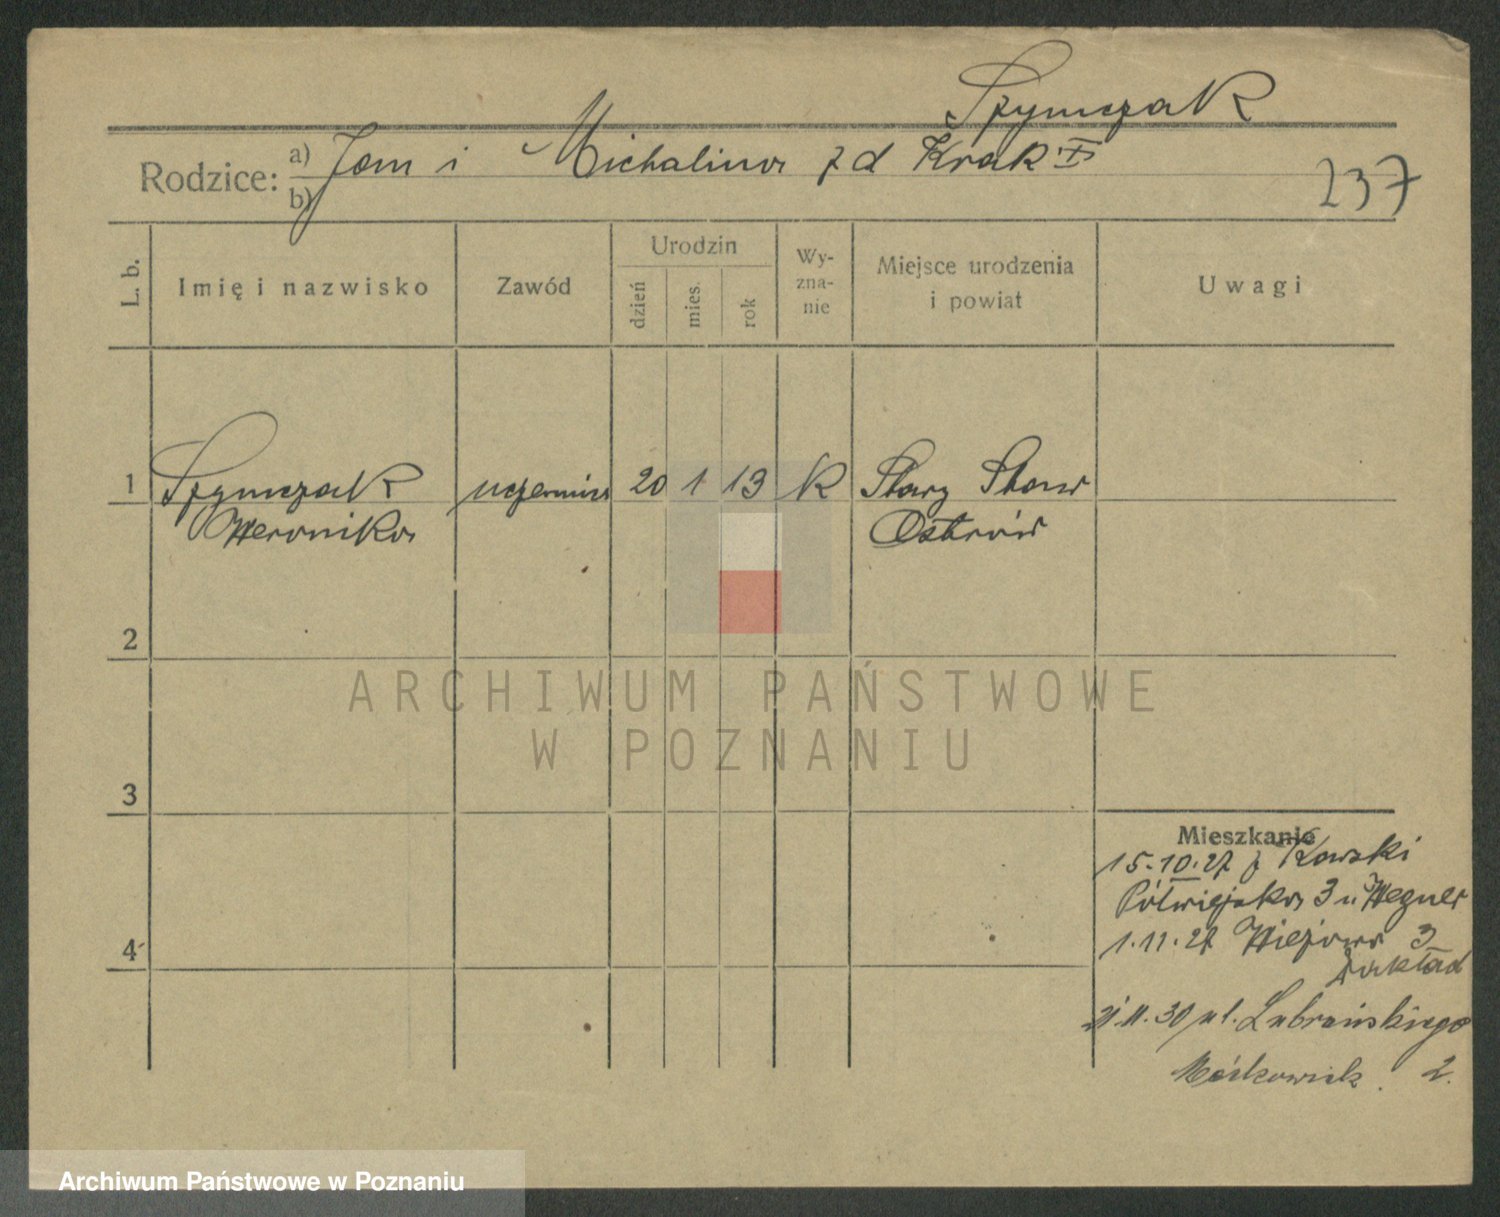 Szymczak
Rodzice: a) Jan i Michalina z d Krak
b)
237
L. b.
Imię i nazwisko
Zawód
Urodzin
dzień
mies.
rok
Wy-
zna-
nie
Miejsce urodzenia
i powiat
Uwagi
1 Szymczak uczennica 20 1 13 K Stary Staw
Weronika Ostrów
2
ARCHIWUM PAŃSTWOWE
W POZNANIU
3
Mieszkanie
15.10.27 z
Półwiejska 3 u Wegner
1.11.27 Wieżowa 3
Zakład
11.30 ul. Lubrańskiego
2.
4
Archiwum Państwowe w Poznaniu